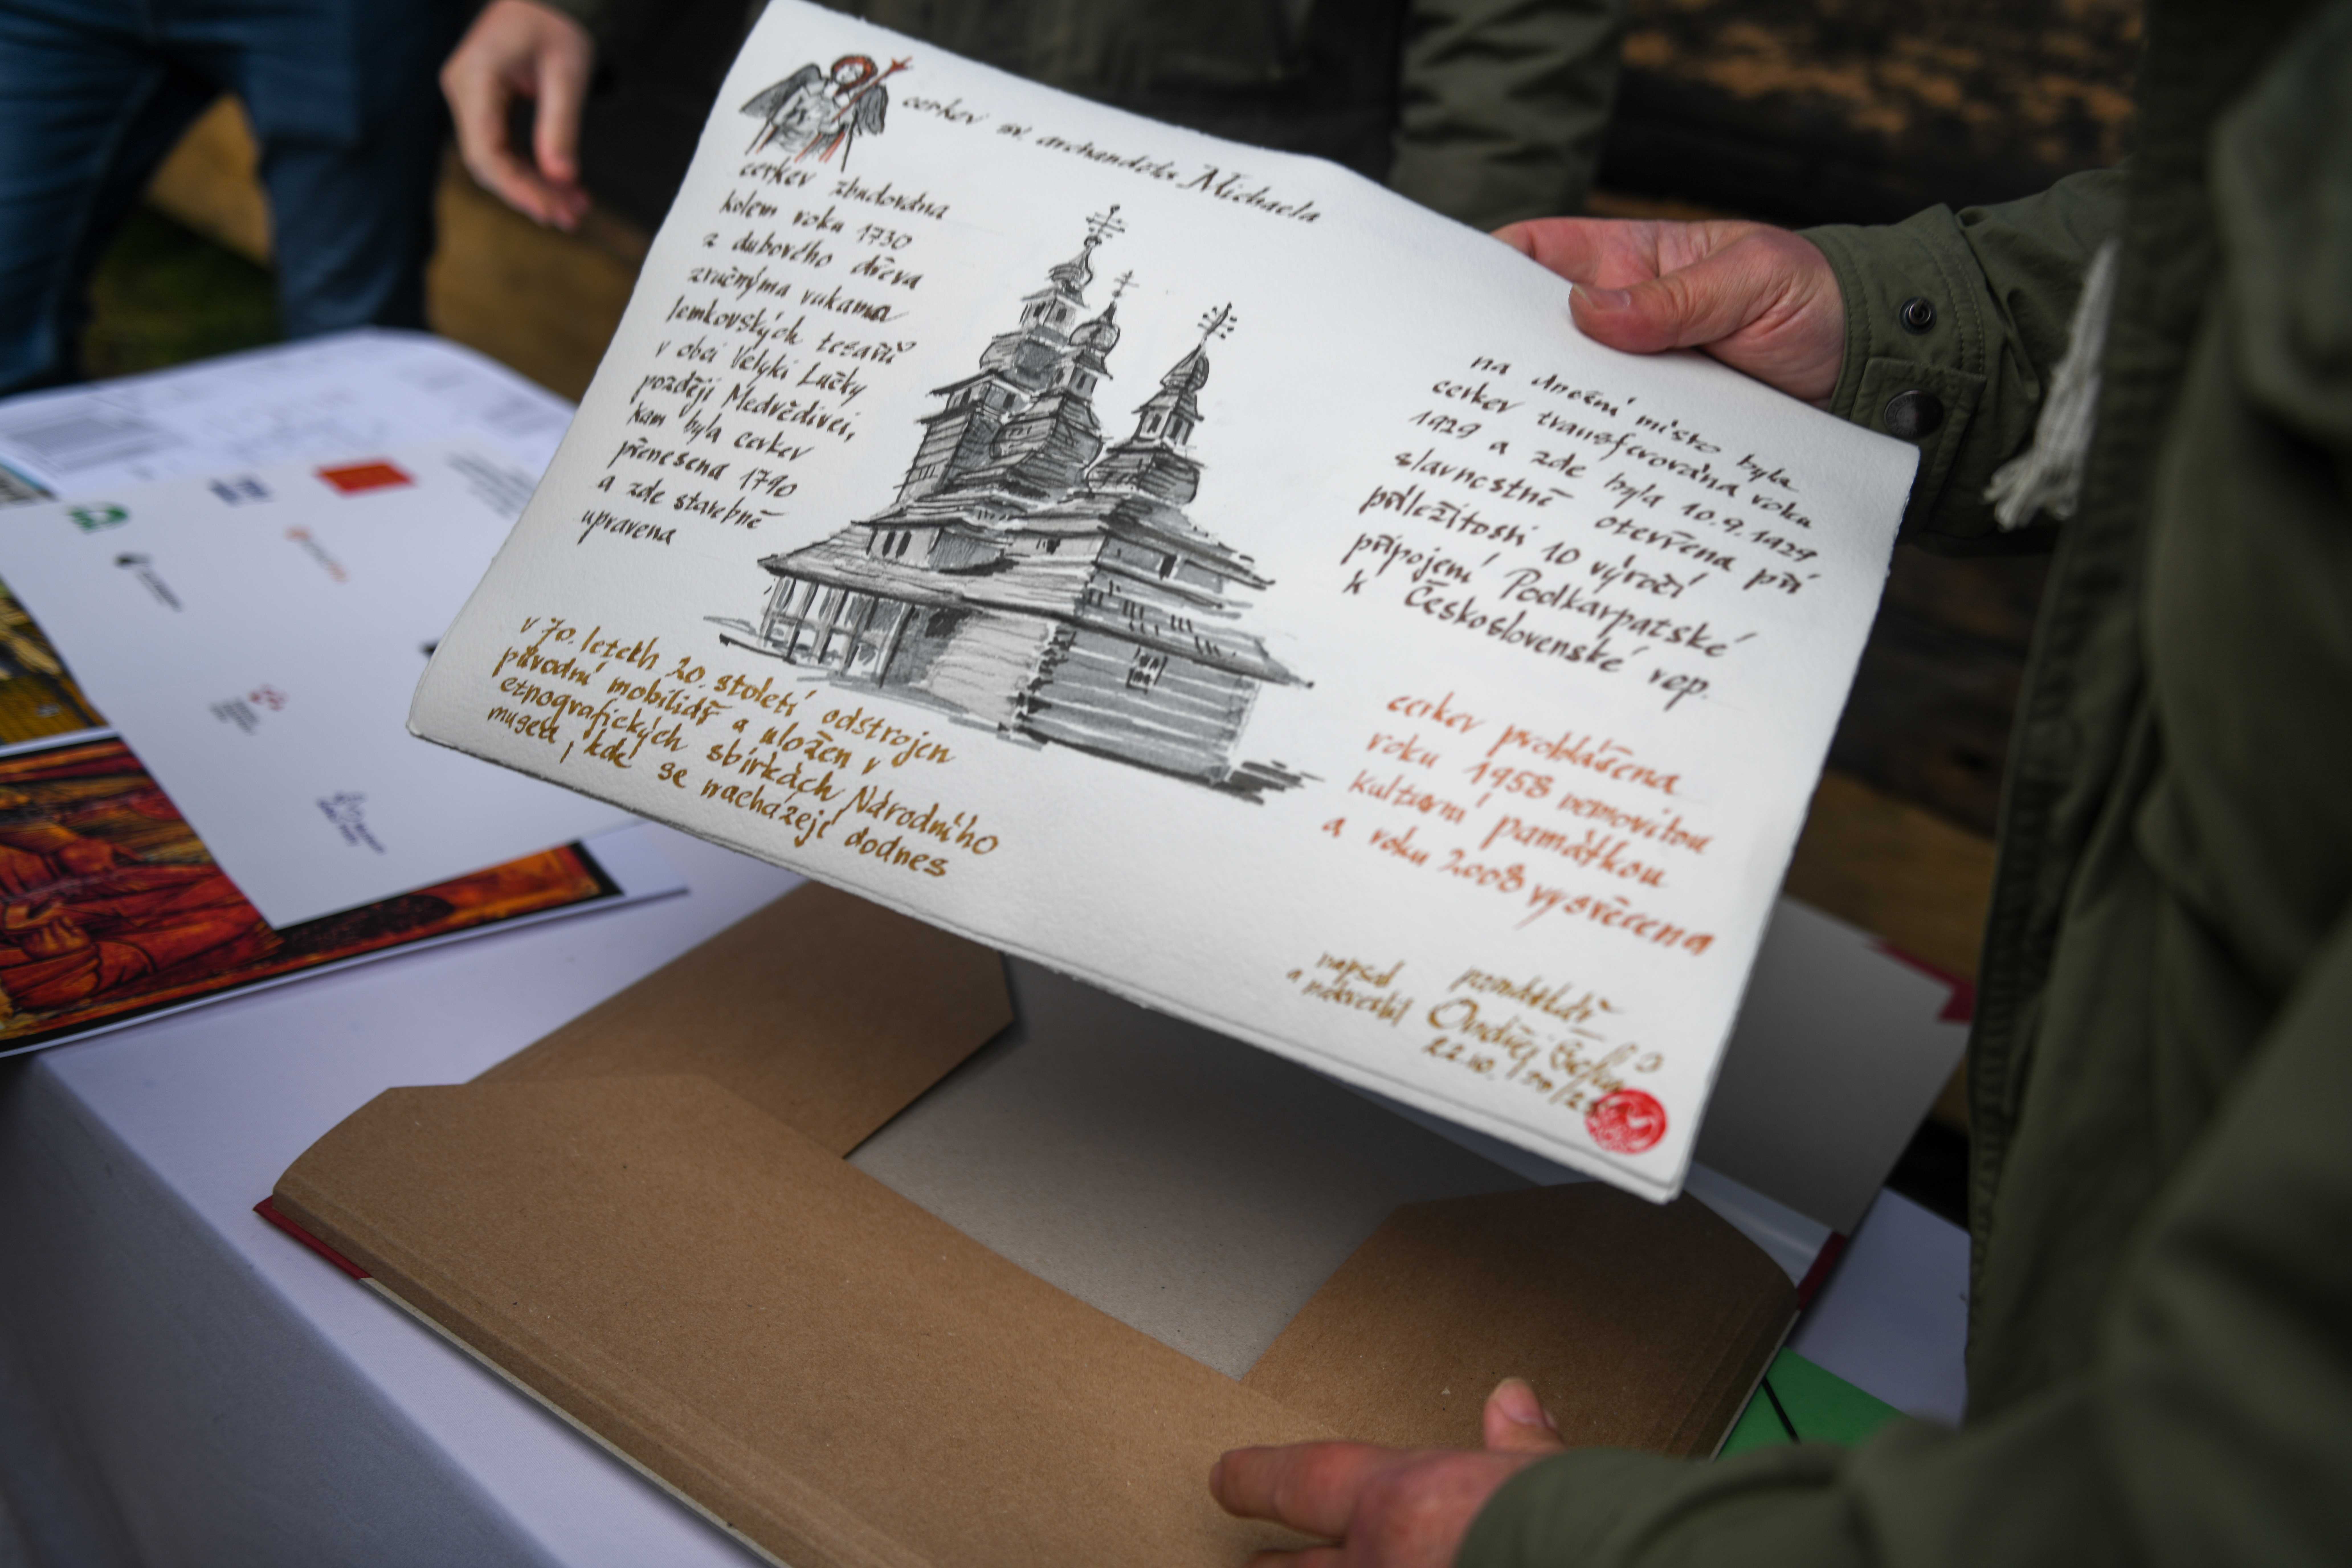 cerkev sv. archanděla Michaela
cerkev zbudována
kolem roku 1730
z dubového dřeva
zručnýma rukama
lemkovských tesařů
v obci Velyki Lučky
později Medvědivci,
kam byla cerkev
přenesena 1790
a zde stavebně
upravena
na dnešní místo byla
cerkev transferována roku
1929 a zde byla 10.9.1929
slavnostně otevřena při
příležitosti 10 výročí
připojení Podkarpatské
k Československé rep.
v 70. letech 20. století odstrojen
původní mobiliář a uložen v
etnografických sbírkách Národního
muzea, kde se nacházejí dodnes
cerkev prohlášena
roku 1958 nemovitou
kulturní památkou
a roku 2008 vysvěcena
napsal památkář
a nakreslil Ondřej
22.10.